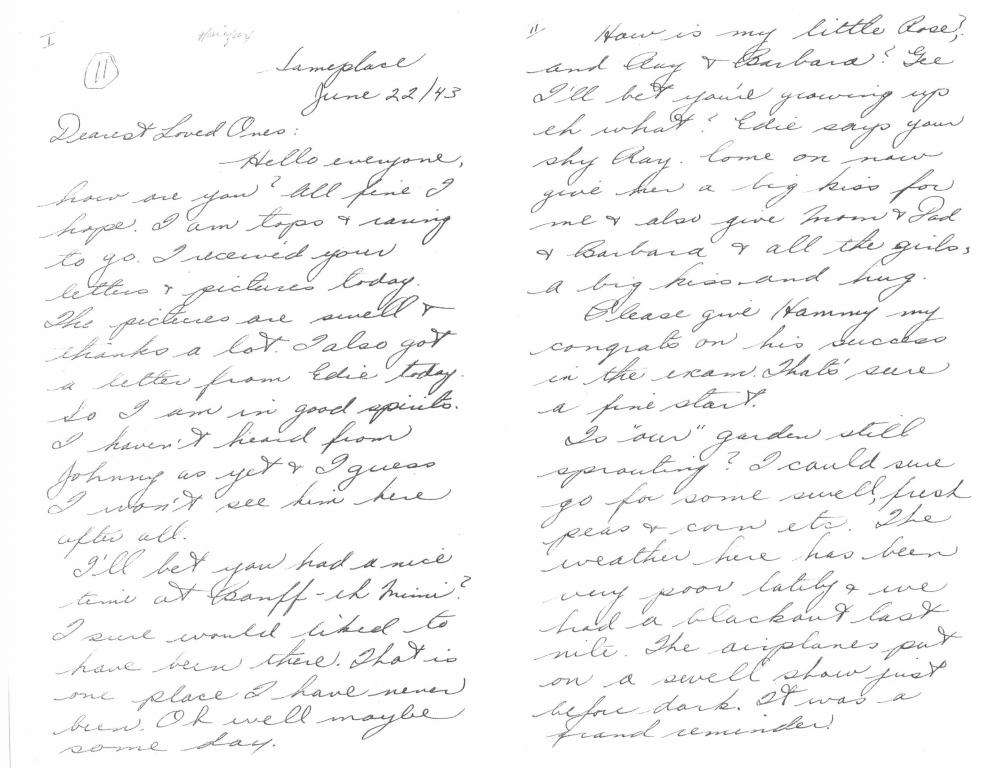 I
Halifax
11
Sameplace
June 22/43
Dearest Loved Ones:
Hello everyone,
how are you? All fine I
hope. I am tops & raring
to go. I received your
letters & pictures today.
The pictures are swell &
thanks a lot. I also got
a letter from Edie today.
So I am in good spirits.
I haven't heard from
Johnny as yet & I guess
I won't see him here
after all.
I'll bet you had a nice
time at Banff - eh Mimi?
I sure would liked to
have been there. That is
one place I have never
been. Oh well maybe
some day.
II
How is my little Rose?,
and Ray & Barbara? Gee
I'll bet you're growing up
eh what? Edie says your
shy Ray. Come on now
give her a big kiss for
me & also give Mom & Dad
& Barbara & all the girls,
a big kiss and hug.
Please give Hammy my
congrats on his success
in the exam. That's sure
a fine start.
Is "our" garden still
sprouting? I could sure
go for some swell, fresh
peas & corn etc. The
weather here has been
very poor lately & we
had a blackout last
nite. The airplanes put
on a swell show just
before dark. It was a
grand reminder.